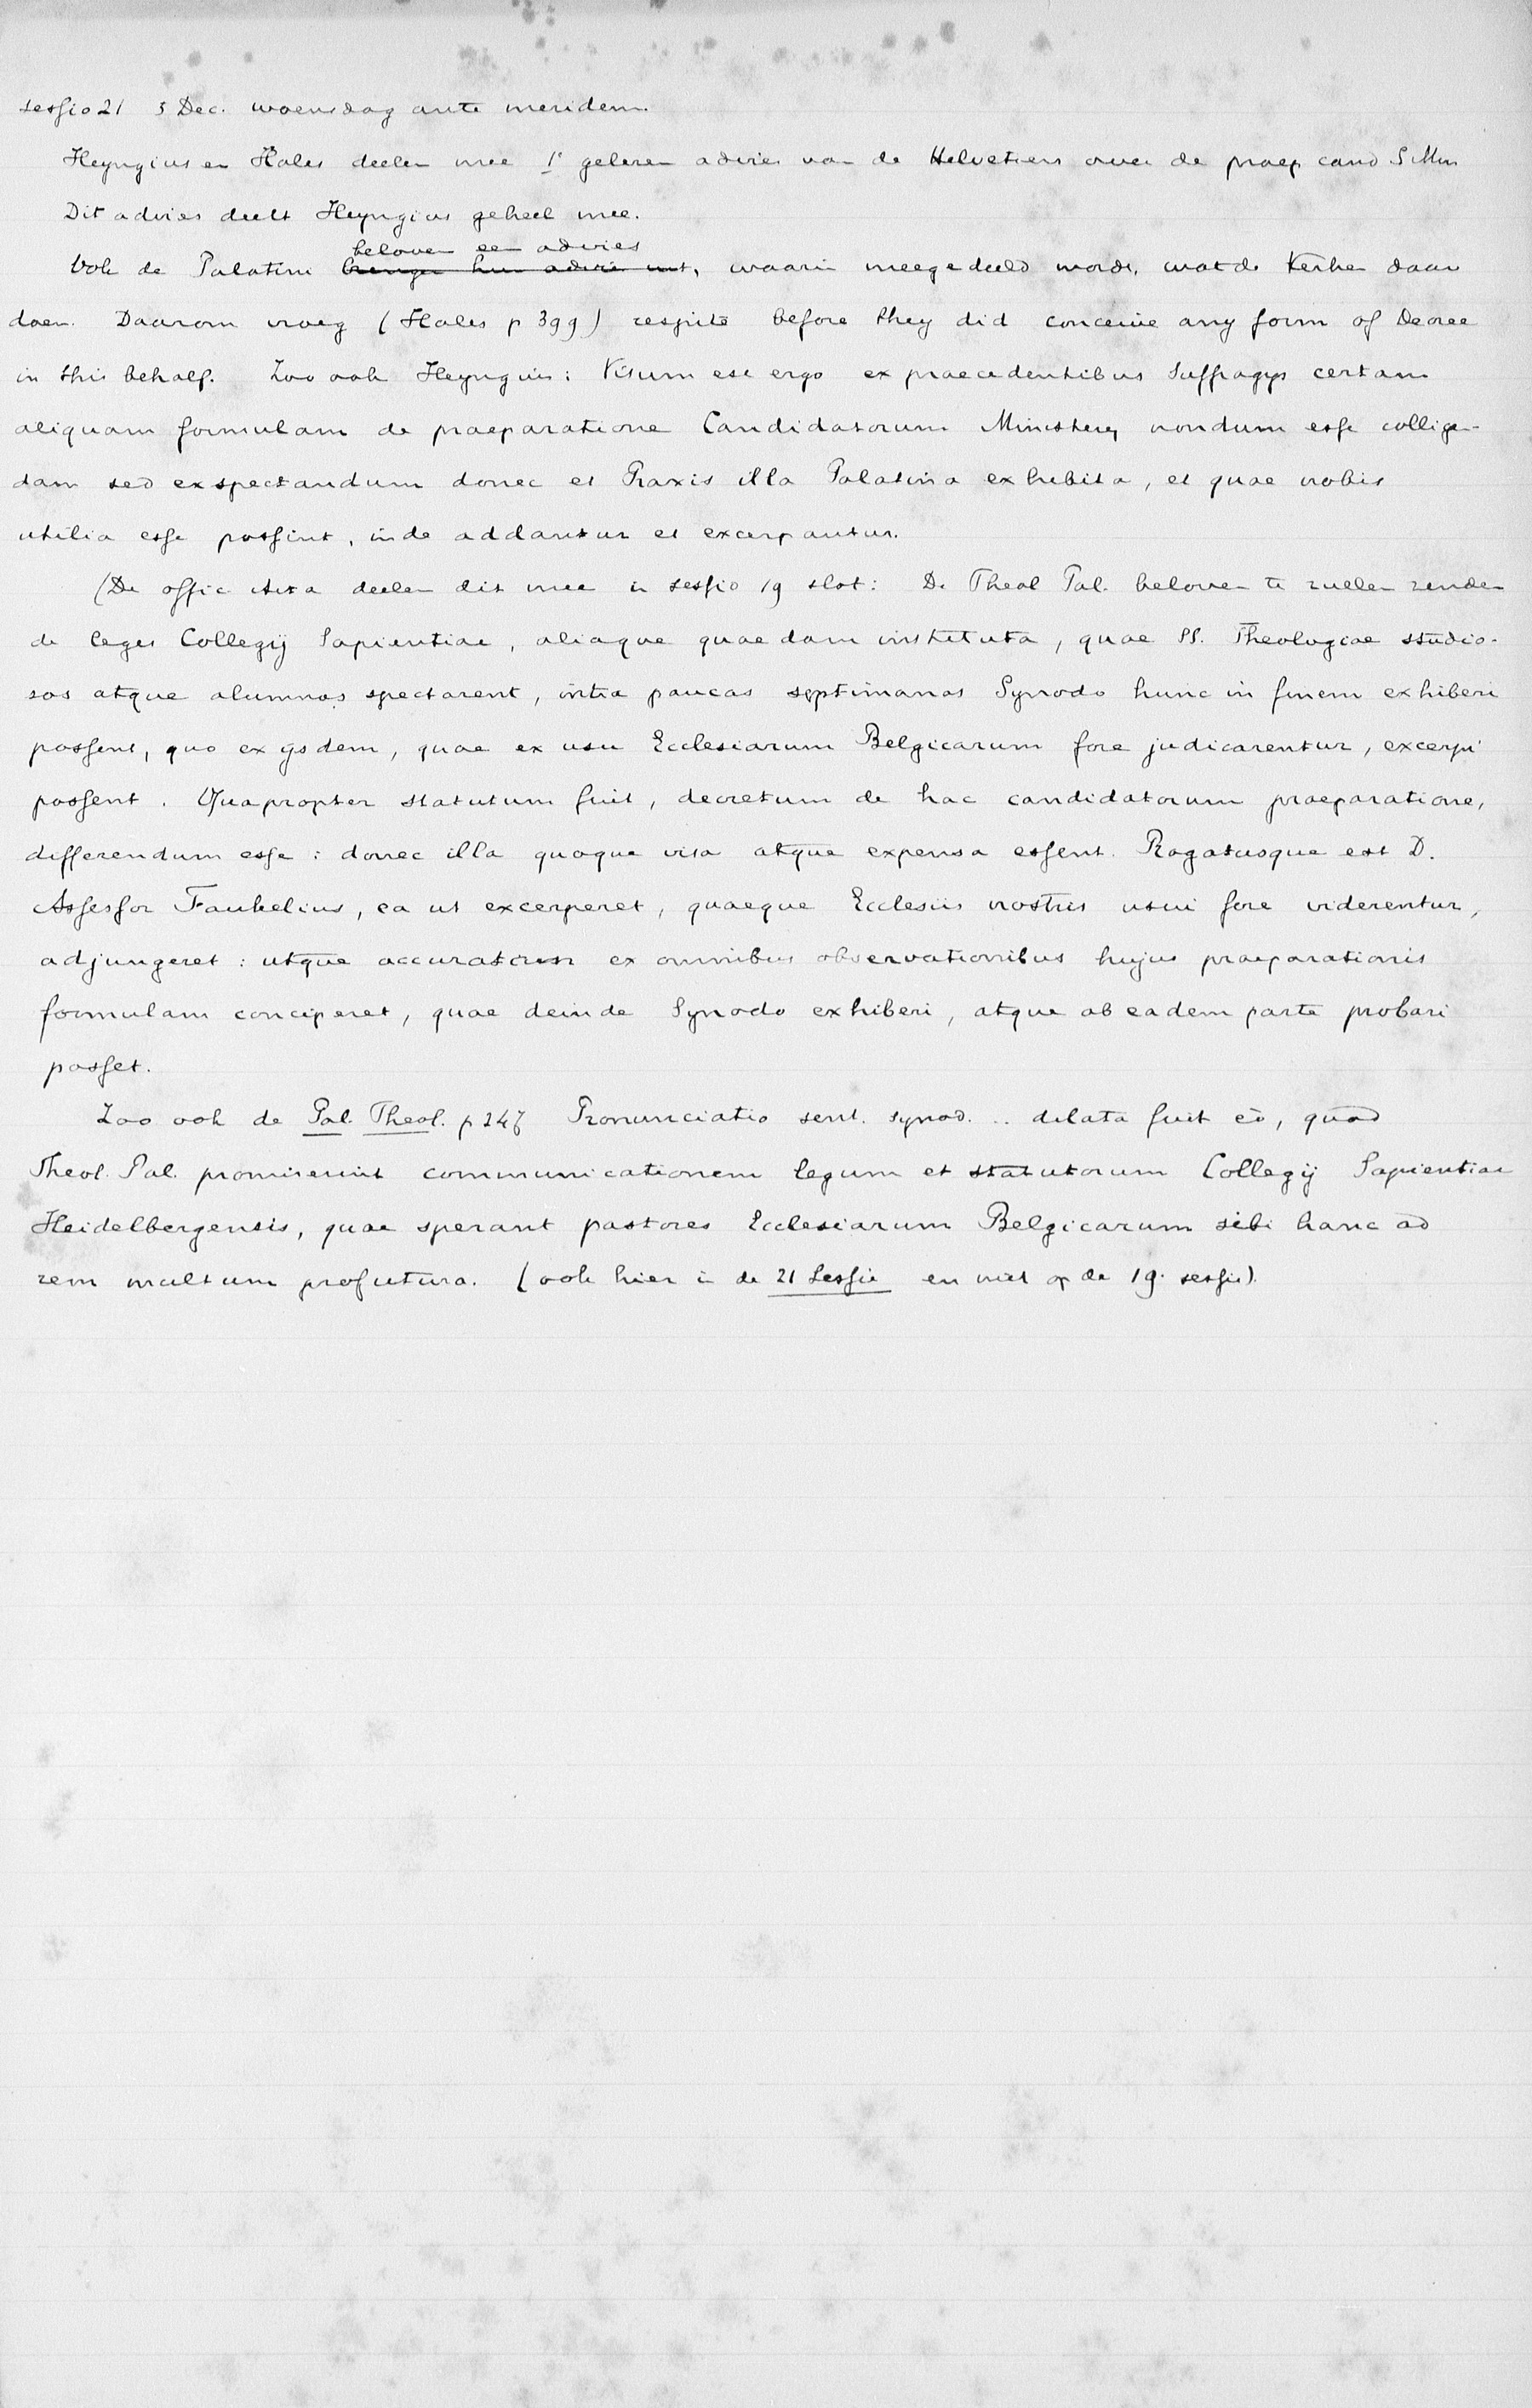 sessio 21 5 Dec. woensdag ante meridem.
Heyngius en Hales deelen mee 1e gelezen advies van de Helvetiers over de praep cand S Min
Dit advies deelt Heyngius geheel mee.
beloven een advies
Ook de Palatini brengen hun advies uit, waarin meegedeeld wordt, wat de Kerken daar
doen. Daarom vroeg (Hales p 399) respite before they did conceive any form of Decree
in this behalf. Zoo ook Heyngius: Visum est ergo ex praecedentibus Suffragys certam
aliquam formulam de praeparatione Candidatorum Ministery nondum esse colligen-
dam sed exspectandum donec et Praxis illa Palatina exhibita, et quae nobis
utilia esse possint, inde addantur et excerpantur.
(De offic Acta deelen dit mee in sessio 19 slot: De Theol Pal. beloven te zullen zenden
de leges Collegij Sapientiae, aliaque quaedam instituta, quae SS. Theologiae studio-
sos atque alumnos spectarent, intra paucas septimanas Synodo hunc in finem exhiberi
possent, quo ex ijsdem, quae ex usu Ecclesiarum Belgicarum fore judicarentur, excerpi
possent. Quapropter statutum fuit, decretum de hac candidatorum praeparatione,
differendum esse: donec illa quoque visa atque expensa essent. Rogatusque est D.
Assessor Faukelius, ea ut excerperet, quaeque Ecclesiis nostris usui fore viderentur,
adjungeret: utque accuratam ex omnibus observationibus hujus praeparationis
formulam conciperet, quae deinde Synodo exhiberi, atque ab eadem parte probari
posset.
Zoo ook de Pal. Theol. p 247 Pronunciatio sent. synod. .. dilata fuit eò, quod
Theol. Pal. promiserint communicationem legum et statutorum Collegij Sapientiae
Heidelbergensis, quae sperant pastores Ecclesiarum Belgicarum sibi hanc ad
rem multum profutura. (ook hier in de 21 Sessie en niet op de 19e sessie).